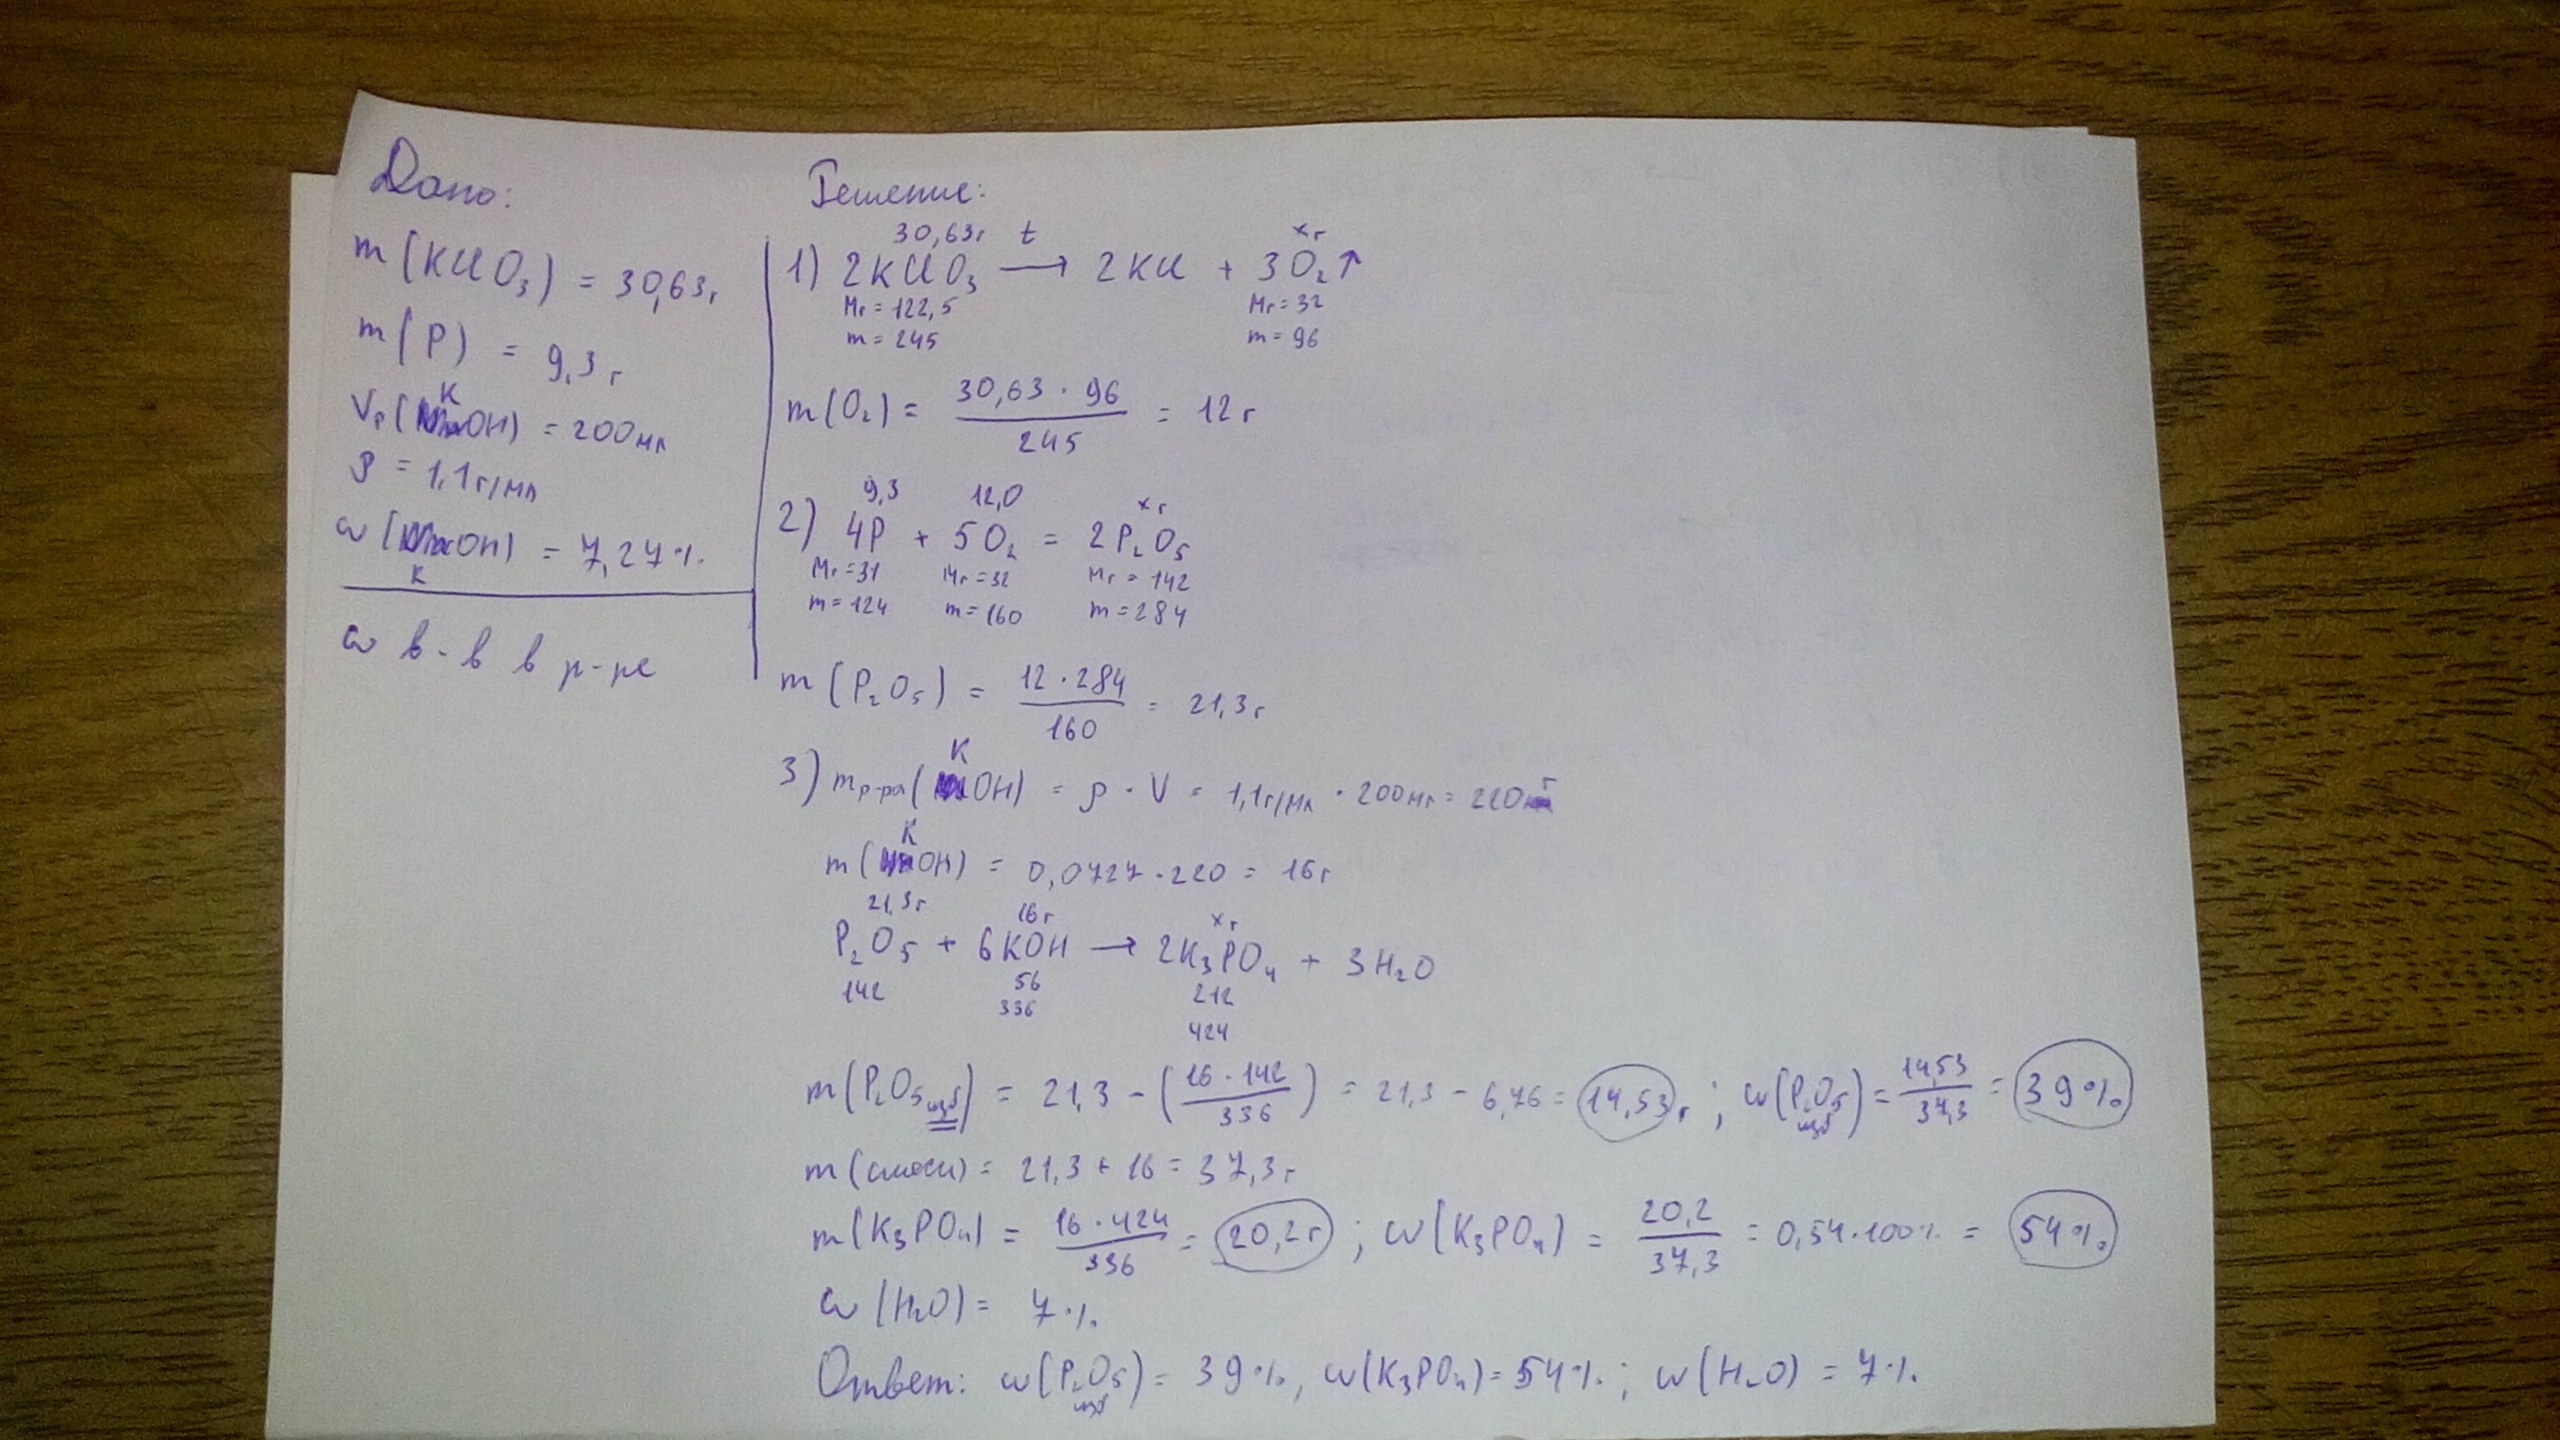 Дано:
m(KClO₃) = 30,63г
m(P) = 9,3г
K
Vр(OH) = 200мл
ρ = 1,1г/мл
ω(OH) = 7,27%
K
ω в-в в р-ре
Решение:
30,63г t xг
1) 2KClO₃ → 2KCl + 3O₂↑
Mr = 122,5 Mr = 32
m = 245 m = 96
m(O₂) = 30,63 · 96 / 245 = 12г
9,3 12,0 xг
2) 4P + 5O₂ = 2P₂O₅
Mr = 31 Mr = 32 Mr = 142
m = 124 m = 160 m = 284
m(P₂O₅) = 12 · 284 / 160 = 21,3г
K
3) mр-ра(OH) = ρ · V = 1,1г/мл · 200мл = 220г
K
m(OH) = 0,0727 · 220 = 16г
21,3г 16г xг
P₂O₅ + 6KOH → 2K₃PO₄ + 3H₂O
142 56 212
336 424
m(P₂O₅изб) = 21,3 − (16 · 142 / 336) = 21,3 − 6,76 = 14,53г ; ω(P₂O₅изб) = 14,53 / 37,3 = 39%
m(смеси) = 21,3 + 16 = 37,3г
m(K₃PO₄) = 16 · 424 / 336 = 20,2г ; ω(K₃PO₄) = 20,2 / 37,3 = 0,54·100% = 54%
ω(H₂O) = 7%
Ответ: ω(P₂O₅изб) = 39%, ω(K₃PO₄) = 54% ; ω(H₂O) = 7%